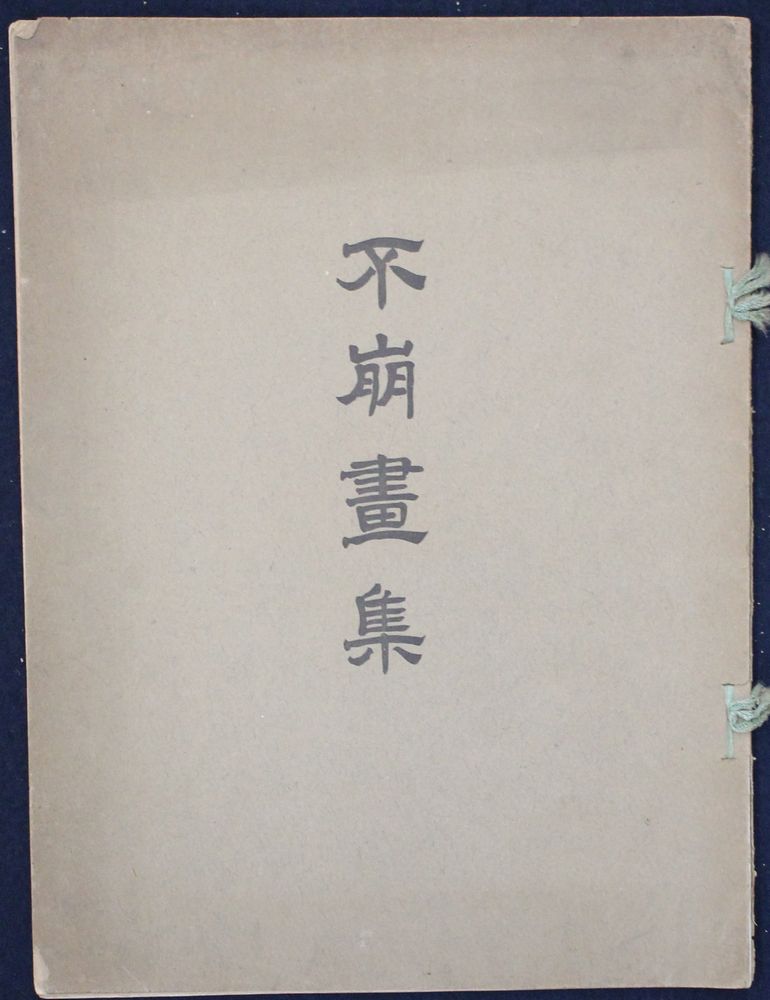 不崩畫集